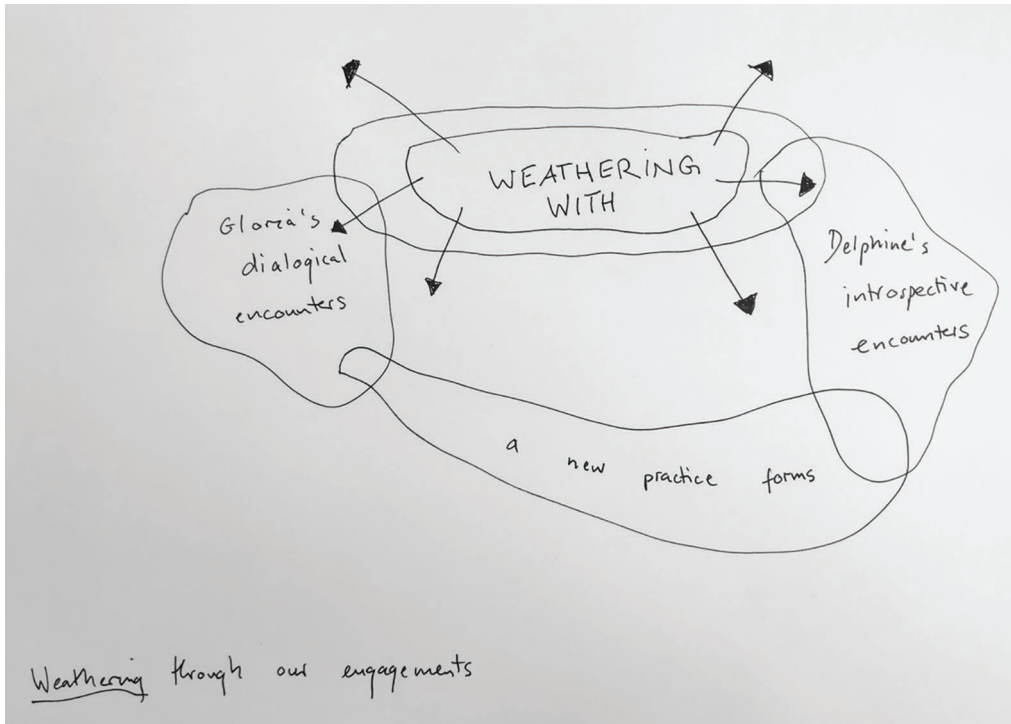 WEATHERING
WITH
Gloria's
dialogical
encounters
Delphine's
introspective
encounters
a new practice forms
Weathering through our engagements